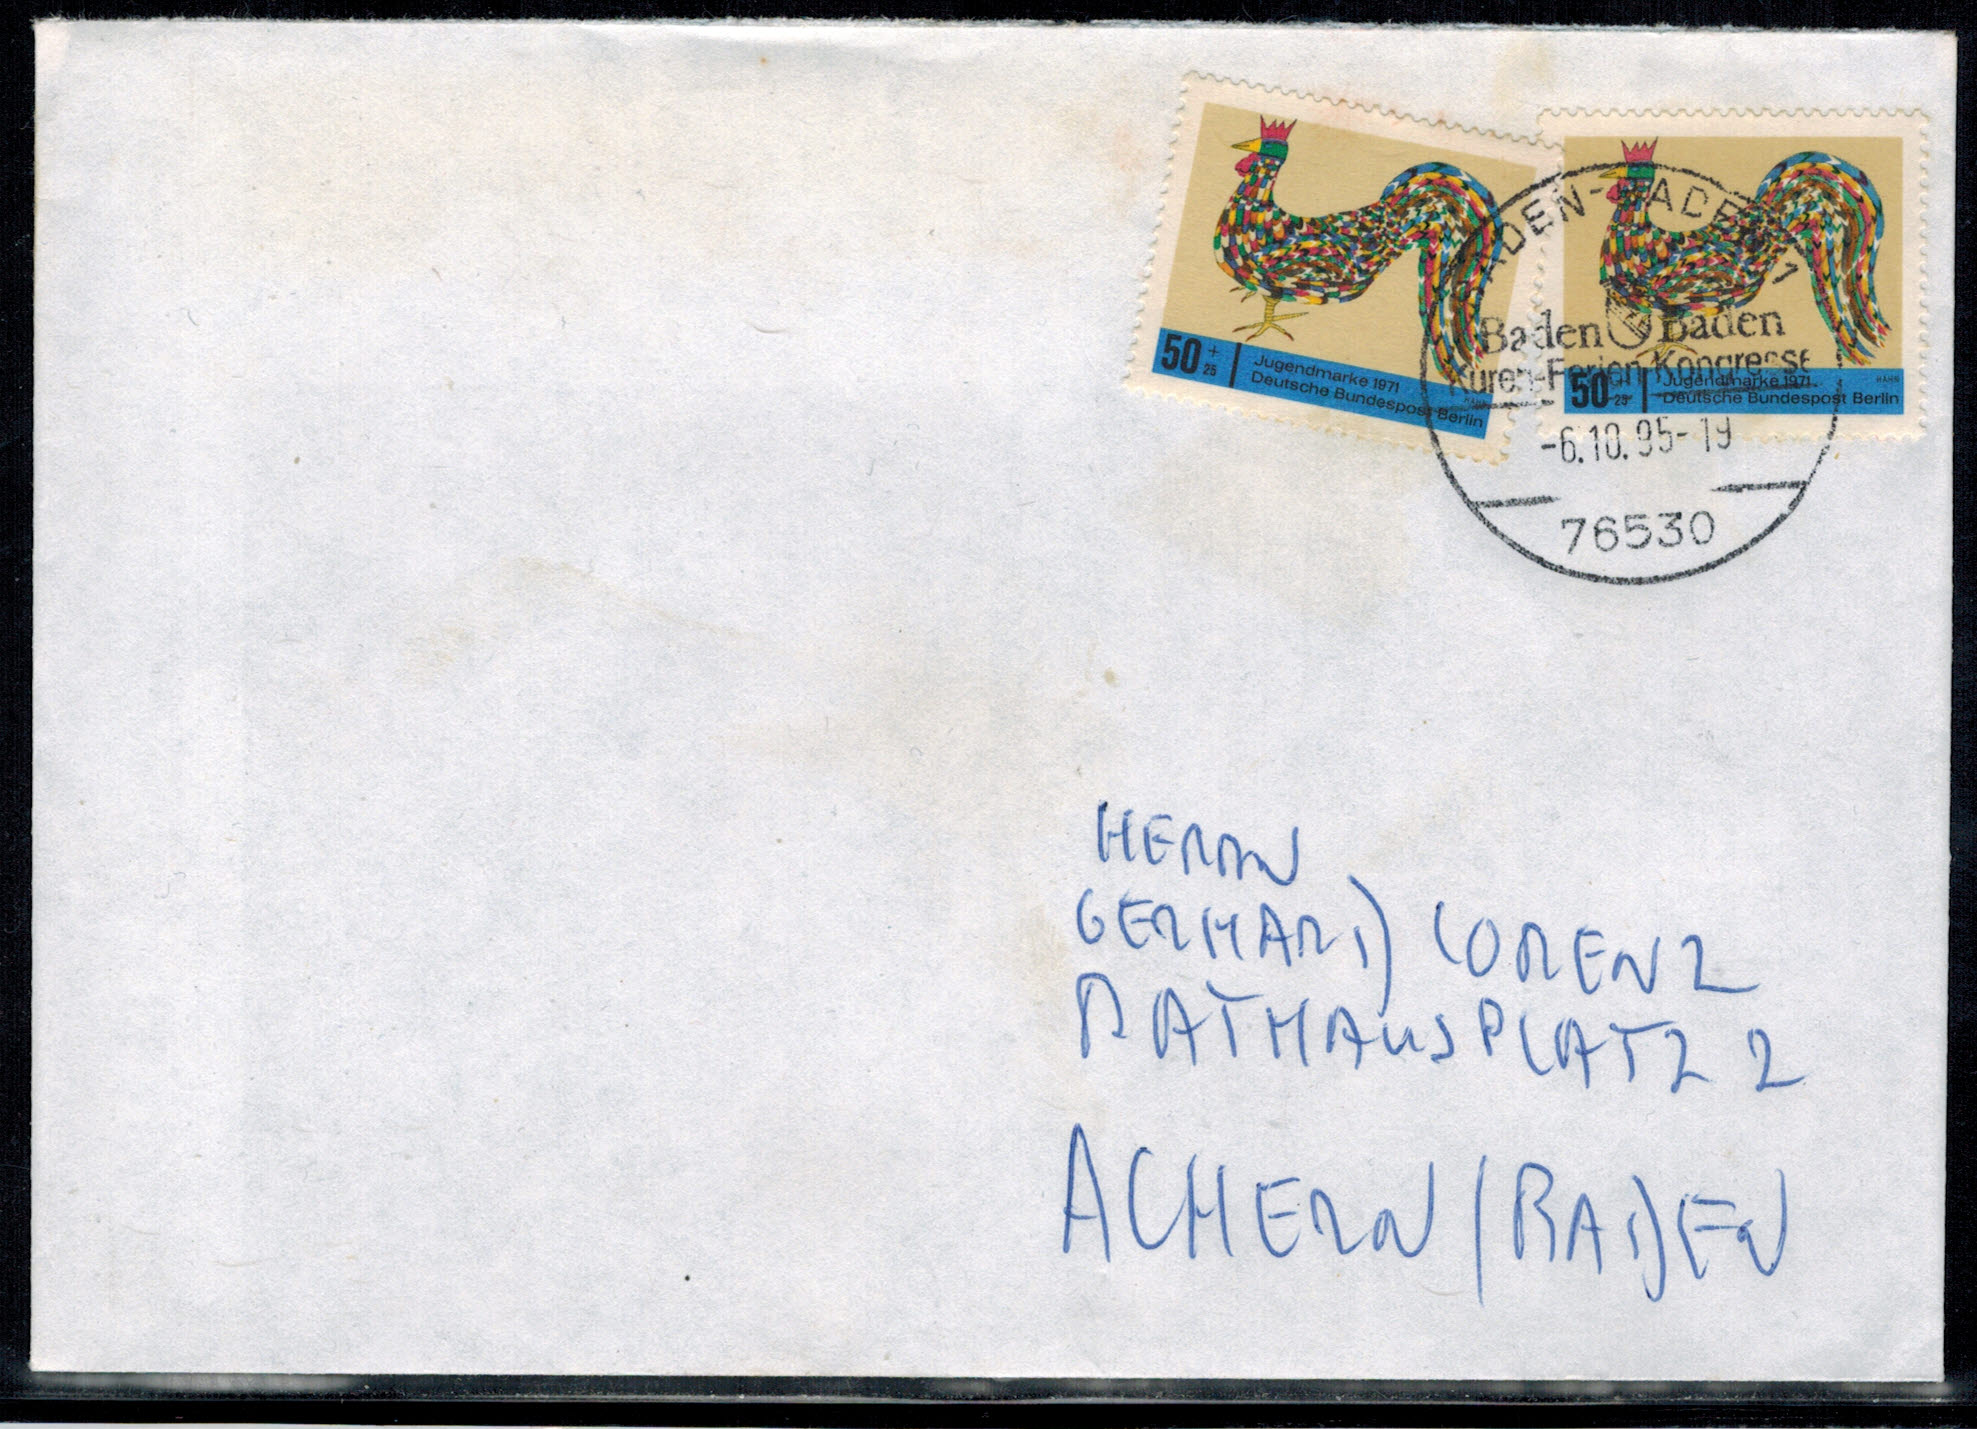 50 + 25 Jugendmarke 1971
Deutsche Bundespost Berlin
HAHN
50 + 25 Jugendmarke 1971
Deutsche Bundespost Berlin
HAHN
BADEN-BADEN 1
Baden Baden
Kuren-Ferien-Kongresse
-6.10.95-19
76530
HERRN
GERHARD LORENZ
RATHAUSPLATZ 2
ACHERN (BADEN